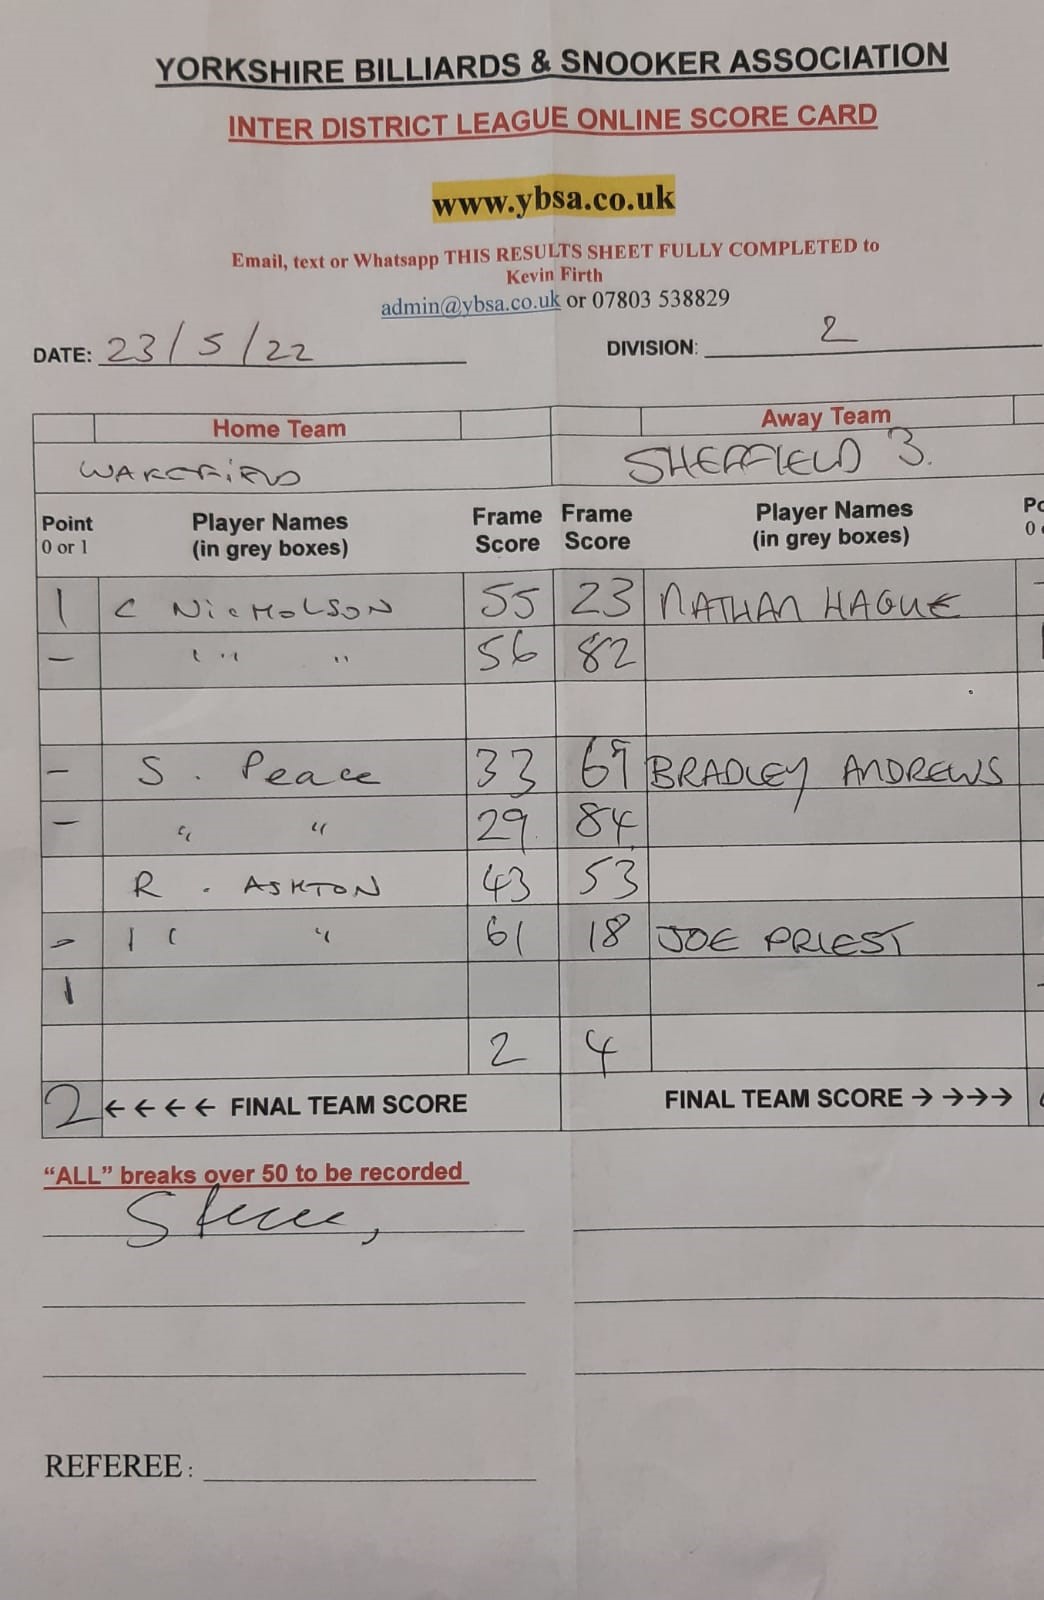 YORKSHIRE BILLIARDS & SNOOKER ASSOCIATION
INTER DISTRICT LEAGUE ONLINE SCORE CARD
www.ybsa.co.uk
Email, text or Whatsapp THIS RESULTS SHEET FULLY COMPLETED to
Kevin Firth
admin@ybsa.co.uk or 07803 538829
DATE: 23/5/22 DIVISION: 2
Home Team Away Team
WAKEFIELD SHEFFIELD 3.
Point Player Names Frame Frame Player Names
0 or 1 (in grey boxes) Score Score (in grey boxes)
1 C NICHOLSON 55 23 NATHAN HAGUE
— " " 56 82
— S. Peace 33 69 BRADLEY ANDREWS
— " " 29 84
R. ASHTON 43 53
- " " 61 18 JOE PRIEST
1
2 4
2 ←←←← FINAL TEAM SCORE FINAL TEAM SCORE → →→→
“ALL” breaks over 50 to be recorded
REFEREE: